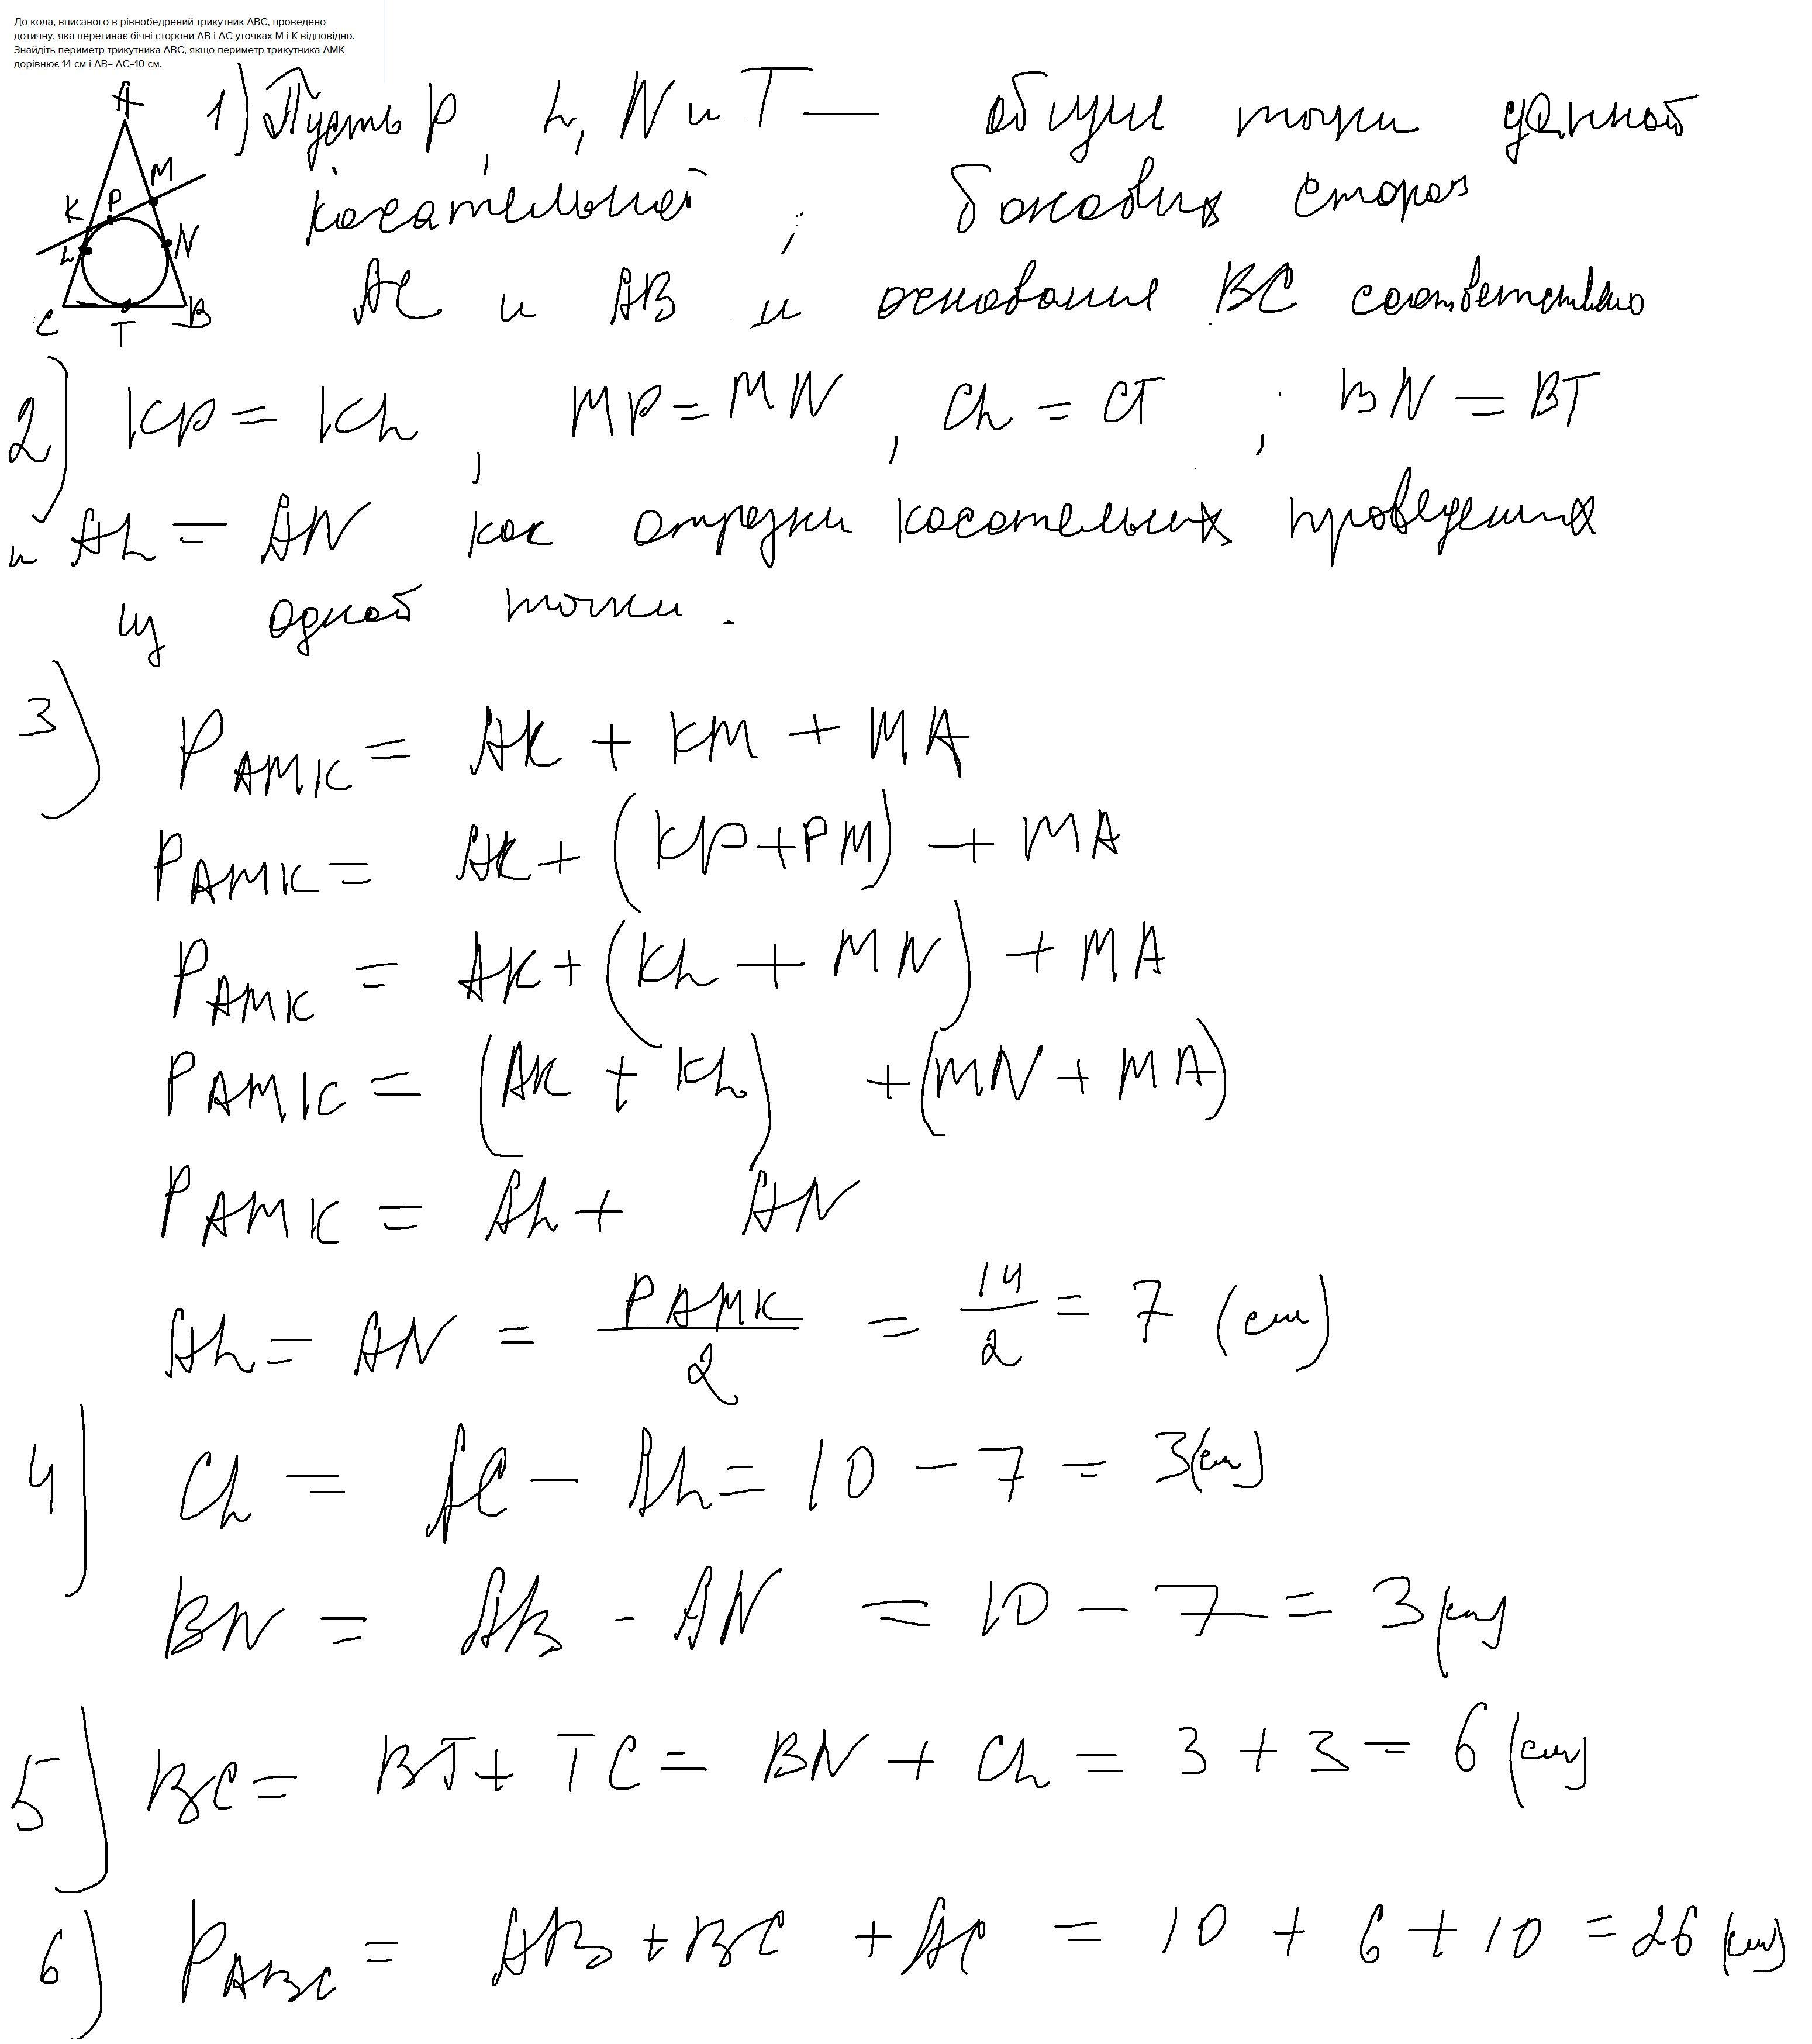 До кола, вписаного в рівнобедрений трикутник ABC, проведено
дотичну, яка перетинає бічні сторони AB і AC уточках M і K відповідно.
Знайдіть периметр трикутника ABC, якщо периметр трикутника AMK
дорівнює 14 см і AB= AC=10 см.
A
M
K P
L N
C T B
1) Пусть P, L, N и T — общие точки данной
касательной, боковых сторон
AC и AB и основания BC соответственно
2) KP = KL, MP = MN, CL = CT, BN = BT
и AL = AN как отрезки касательных проведенных
из одной точки.
3) P AMK = AK + KM + MA
P AMK = AK + (KP + PM) + MA
P AMK = AK + (KL + MN) + MA
P AMK = (AK + KL) + (MN + MA)
P AMK = AL + AN
AL = AN = P AMK / 2 = 14 / 2 = 7 (см)
4) CL = AC - AL = 10 - 7 = 3 (см)
BN = AB - AN = 10 - 7 = 3 (см)
5) BC = BT + TC = BN + CL = 3 + 3 = 6 (см)
6) P ABC = AB + BC + AC = 10 + 6 + 10 = 26 (см)